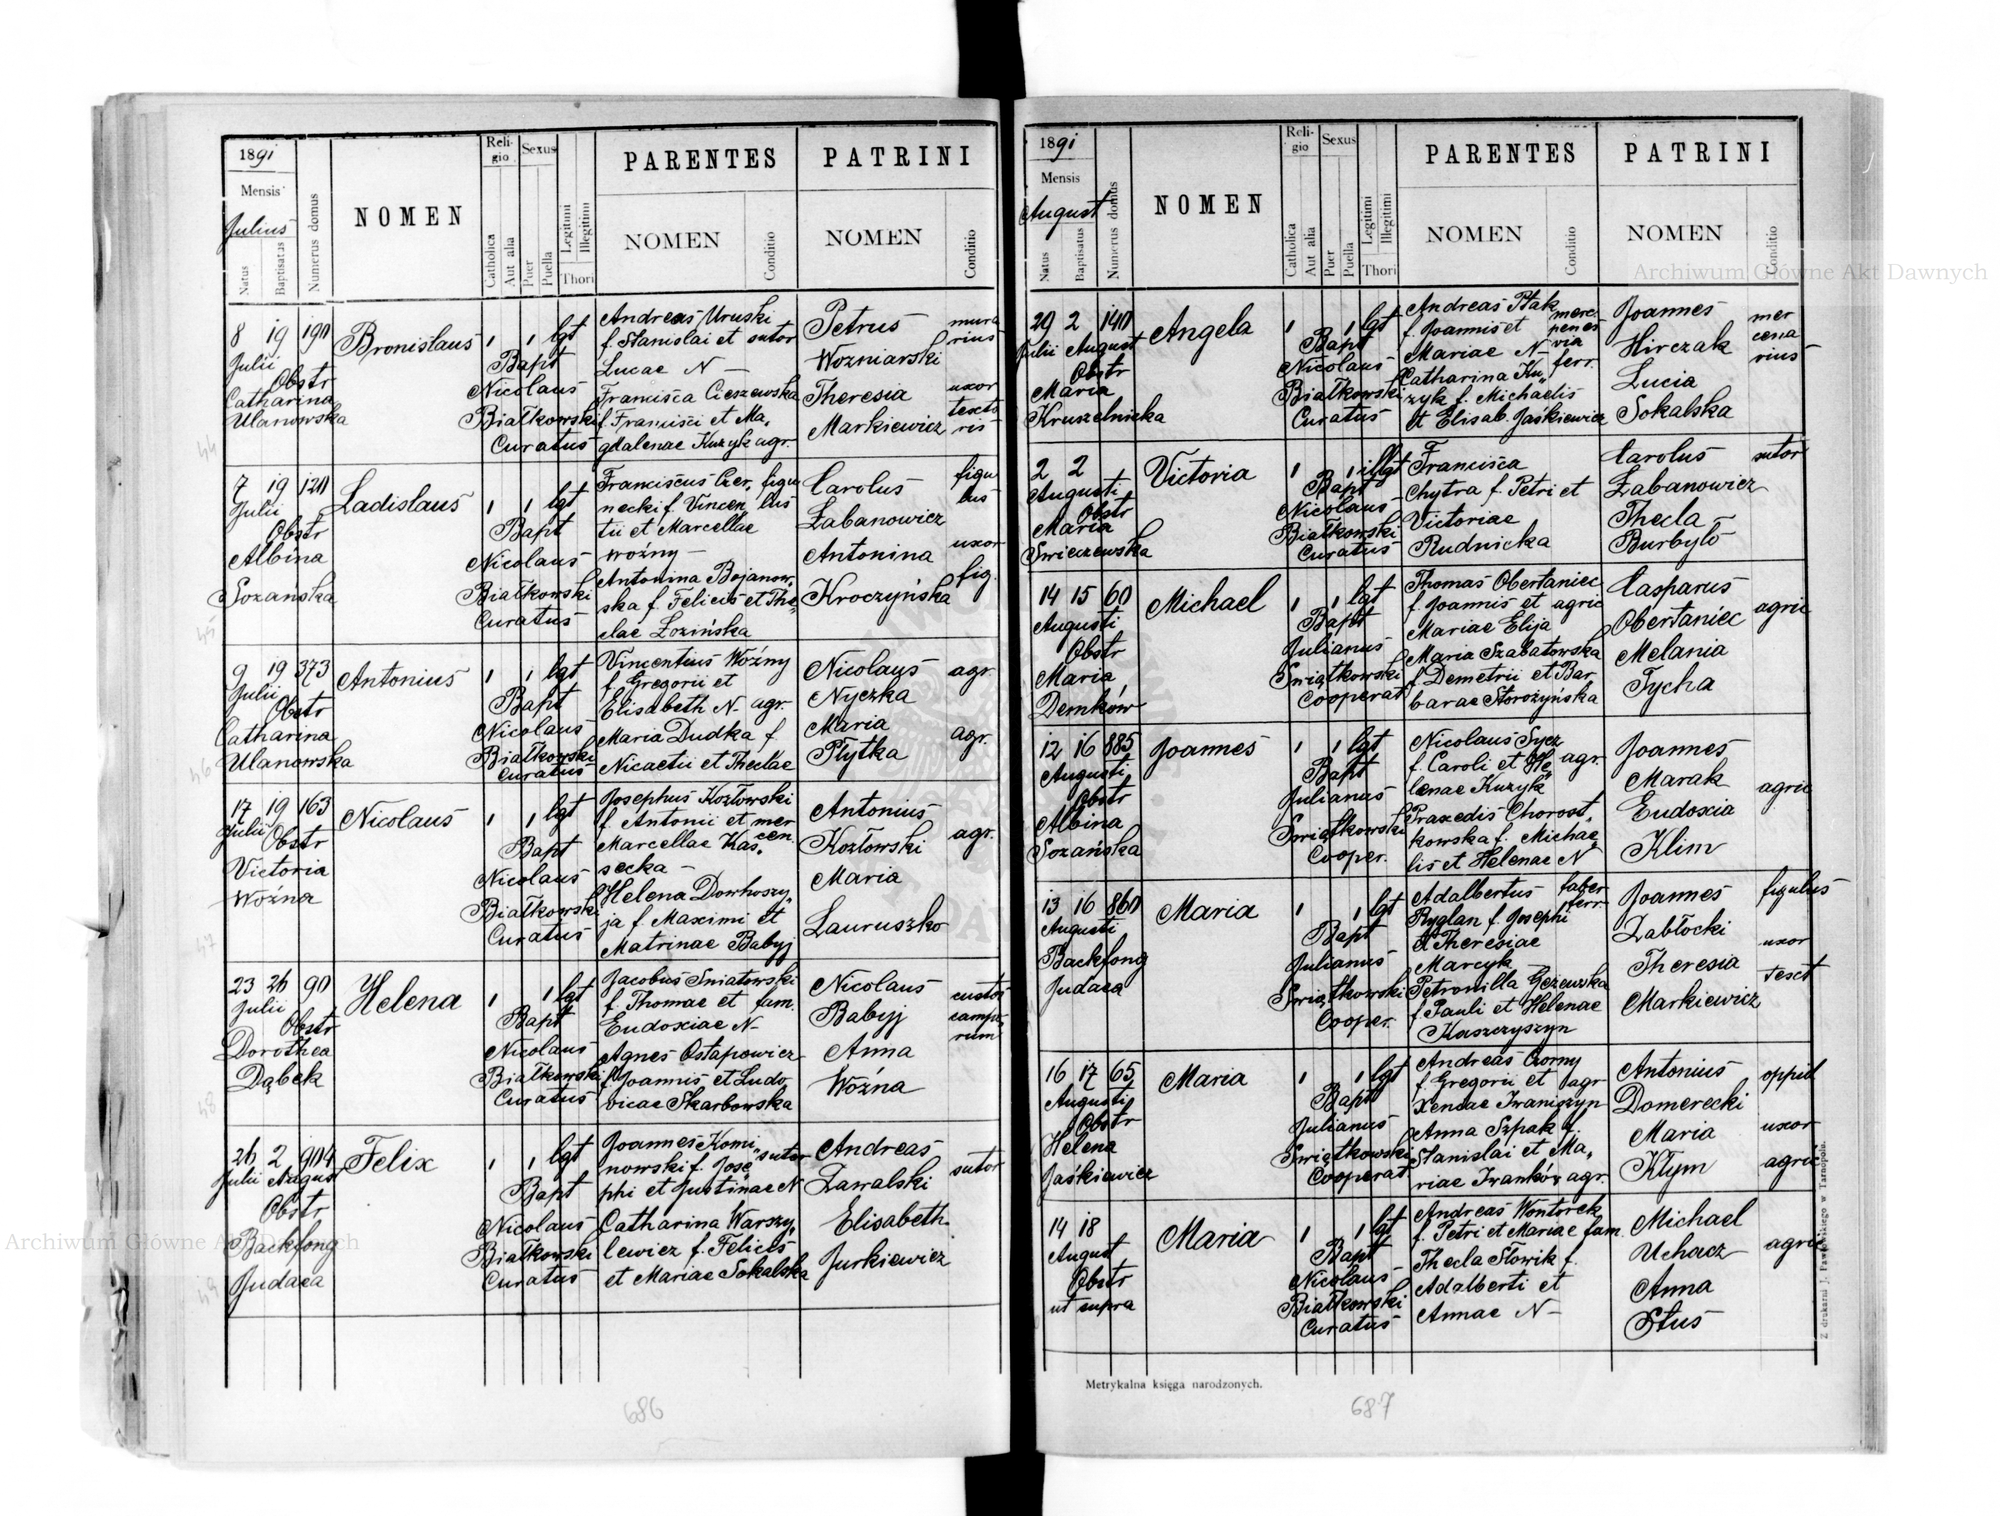 1891
Mensis
Julius
Natus
Baptisatus
Numerus domus
NOMEN
Religio
Catholica
Aut alia
Sexus
Puer
Puella
Legitimi
Illegitimi
Thori
PARENTES
NOMEN
Conditio
PATRINI
NOMEN
Conditio
8 19 190
Julii
Obstr
Catharina
Ulanowska
44
Bronislaus
1 1 lgt
Bapt
Nicolaus
Białkowski
Curatus
Andreas Uruski
f. Stanislai et sutor
Lucae N –
Francisca Cieszewska
f Francisci et Ma,
gdalenae Kuzyk agr.
Petrus
Wozniarski
Theresia
Markiewicz
mura
rius
uxor
textо
ris
7 19 120
Julii
Obstr
Albina
Sozańska
45
Ladislaus
1 1 lgt
Bapt
Nicolaus
Białkowski
Curatus
Franciscus Czer, figu
necki f. Vincen, lus
tii et Marcellae
woźny –
Antonina Bojanow,
ska f. Felicis et The,
clae Łozińska
Carolus
Łabanowicz
Antonina
Kroczyńska
figu
lus
uxor
fig.
9 19 373
Julii
Obstr
Catharina
Ulanowska
46
Antonius
1 1 lgt
Bapt
Nicolaus
Białkowski
Curatus
Vincentius Woźny
f. Gregorii et
Elisabeth N – agr.
Maria Dudka f.
Nicaetii et Theclae
Nicolaus
Nyczka
Maria
Płytka
agr.
agr.
17 19 163
Julii
Obstr
Victoria
Woźna
47
Nicolaus
1 1 lgt
Bapt
Nicolaus
Białkowski
Curatus
Josephus Kozłowski
f. Antonii et mer
Marcellae Kas, cen.
secka –
Helena Dowhoszy,
ja f. Maximi et
Matrinae Babyj
Antonius
Kozłowski
Maria
Lauruszko
agr.
23 26 90
Julii
Obstr
Dorothea
Dąbek
48
Helena
1 1 lgt
Bapt
Nicolaus
Białkowski
Curatus
Jacobus Sniatowski
f. Thomae et fam.
Eudoxiae N –
Agnes Ostapowicz
f Joannis et Ludo
vicae Skarbowska
Nicolaus
Babyj
Anna
Woźna
custos
campo,
rum
26 2 904
Julii August
Obstr
Backfong
Judaea
49
Felix
1 1 lgt
Bapt
Nicolaus
Białkowski
Curatus
Joannes Komi, sutor
nowski f. Jose,
phi et Justinae N
Catharina Warszy,
lewicz f. Felicis
et Mariae Sokalska
Andreas
Zawalski
Elisabeth
Jurkiewicz
sutor
686
1891
Mensis
August
Natus
Baptisatus
Numerus domus
NOMEN
Religio
Catholica
Aut alia
Sexus
Puer
Puella
Legitimi
Illegitimi
Thori
PARENTES
NOMEN
Conditio
PATRINI
NOMEN
Conditio
29 2 1410
Julii August
Obstr
Maria
Kruszelnicka
Angela
1 1 lgt
Bapt
Nicolaus
Białkowski
Curatus
Andreas Ptak
f. Joannis et
Mariae N –
Catharina Ku,
zyk f. Michaelis
et Elisab. Jaśkiewicz
via
ferr.
Joannes
Hirczak
Lucia
Sokalska
mer
cena
rius
2 2
Augusti
Obstr
Maria
Swieczewska
Victoria
1 1 illgt
Bapt
Nicolaus
Białkowski
Curatus
Francisca
Chytra f. Petri et
Victoriae
Rudnicka
Carolus
Łabanowicz
Thecla –
Burbyło
sutor
14 15 60
Augusti
Obstr
Maria
Demków
Michael
1 1 lgt
Bapt
Julianus
Swiątkowski
Cooperat
Thomas Obertaniec
f. Joannis et agric
Mariae Elija
Maria Szabatowska
f. Demetrii et Bar
barae Storożyńska
Casparus
Obertaniec
Melania
Tycha
agric
12 16 885
Augusti
Obstr
Albina
Sozańska
Joannes
1 1 lgt
Bapt
Julianus
Swiątkowski
Cooper.
Nicolaus Sycz
f. Caroli et He, agr.
lenae Kuzyk
Praxedis Chorost,
kowska f. Michae,
lis et Helenae N
Joannes
Marak
Eudoxia
Klim
agric
13 16 860
Augusti
Backfong
Judaea
Maria
1 1 lgt
Bapt
Julianus
Swiątkowski
Cooper.
Adalbertus faber
Ryglan f. Josephi ferr.
et Theresiae
Marcyk –
Petronilla Gezewska
f. Pauli et Helenae
Kaszczyszyn
Joannes
Zabłocki
Theresia
Markiewicz
figulus
uxor
text
16 17 65
Augusti
Obstr
Helena
Jaśkiewicz
Maria
1 1 lgt
Bapt
Julianus
Swiątkowski
Cooperat
Andreas Czorny
f. Gregorii et agr
Xeniae Iwaniszyn
Anna Szpak f.
Stanislai et Ma,
riae Iwanków agr.
Antonius
Domerecki
Maria
Kłym
oppid
uxor
agric
14 18
August
Obstr
ut supra
Maria
1 1 lgt
Bapt
Nicolaus
Białkowski
Curatus
Andreas Wontorek
f. Petri et Mariae fam.
Thecla Słowik f.
Adalberti et
Annae N –
Michael
Uchacz
Anna
Stus
agric
Metrykalna księga narodzonych.
Z drukarni J. Pawłowskiego w Tarnopolu.
687
Archiwum Główne Akt Dawnych
Archiwum Główne Akt Dawnych